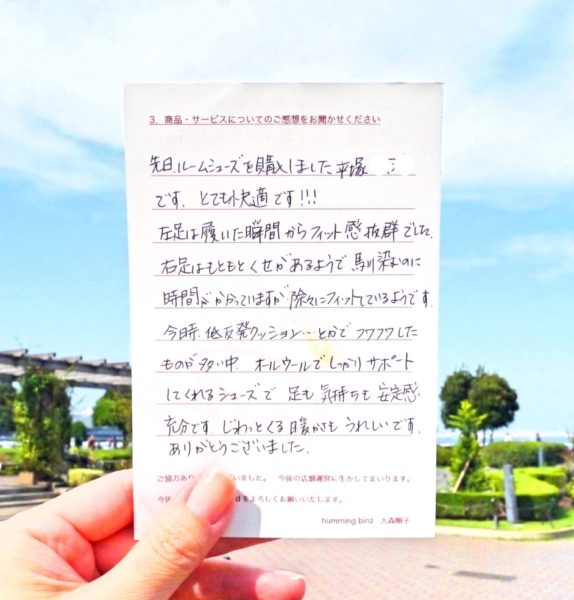 3. 商品・サービスについてのご感想をお聞かせください
先日、ルームシューズを購入しました 平塚
です。とても快適です!!!
左足は履いた瞬間からフィット感抜群でした。
右足はもともとくせがあるようで馴染むのに
時間がかかっていますが徐々にフィットしているようです。
今時、低反発クッション…とかでフワフワした
ものが多い中、オールウールでしっかりサポート
してくれるシューズで 足も気持ちも安定感
充分です。じわっとくる暖かさもうれしいです。
ありがとうございました。
ご協力あり ございました。 今後の店舗運営に生かしてまいります。
今後 dをよろしくお願いいたします。
humming bird 大森順子